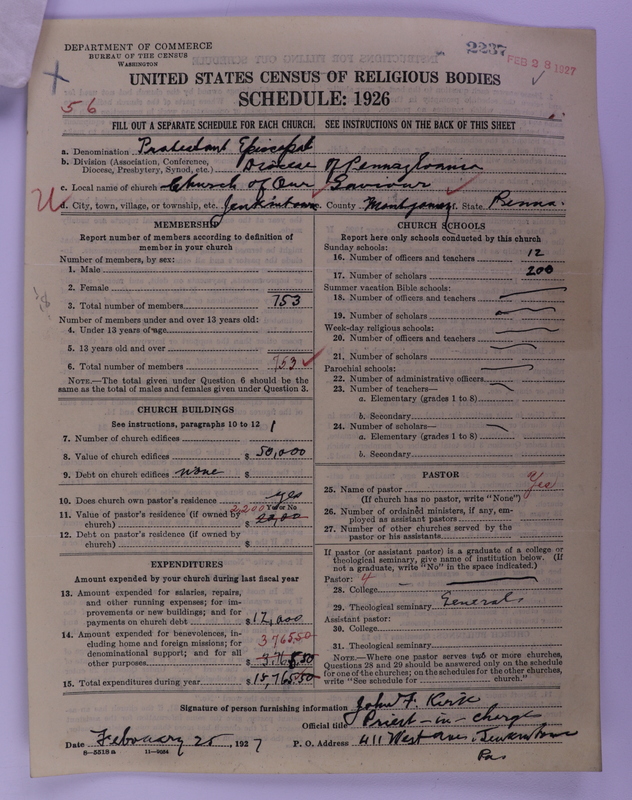 DEPARTMENT OF COMMERCE
BUREAU OF THE CENSUS
WASHINGTON
2237
FEB 28 1927
UNITED STATES CENSUS OF RELIGIOUS BODIES
SCHEDULE: 1926
56
FILL OUT A SEPARATE SCHEDULE FOR EACH CHURCH. SEE INSTRUCTIONS ON THE BACK OF THIS SHEET
a. Denomination Protestant Episcopal
b. Division (Association, Conference, Diocese, Presbytery, Synod, etc.) Diocese of Pennsylvania
c. Local name of church Church of Our Saviour
d. City, town, village, or township, etc. Jenkintown e. County Montgomery f. State Penna.
MEMBERSHIP
Report number of members according to definition of
member in your church
Number of members, by sex:
1. Male
2. Female
3. Total number of members 753
Number of members under and over 13 years old:
4. Under 13 years of age
5. 13 years old and over
6. Total number of members 753
NOTE.—The total given under Question 6 should be
same as the total of males and females given under Question 3.
CHURCH BUILDINGS
See instructions, paragraphs 10 to 12
7. Number of church edifices 1
8. Value of church edifices $ 50,000
9. Debt on church edifices none $
10. Does church own pastor's residence yes
Yes or No
11. Value of pastor's residence (if owned by
church) $
12. Debt on pastor's residence (if owned by
church) $
EXPENDITURES
Amount expended by your church during last fiscal year
13. Amount expended for salaries, repairs,
and other running expenses; for im-
provements or new buildings; and for
payments on church debt $ 12,000
14. Amount expended for benevolences, in-
cluding home and foreign missions; for
denominational support; and for all
other purposes $ 3765.50
15. Total expenditures during year $ 15,765.50
CHURCH SCHOOLS
Report here only schools conducted by this church
Sunday schools:
16. Number of officers and teachers 12
17. Number of scholars 200
Summer vacation Bible schools:
18. Number of officers and teachers
19. Number of scholars
Week-day religious schools:
20. Number of officers and teachers
21. Number of scholars
Parochial schools:
22. Number of administrative officers
23. Number of teachers—
a. Elementary (grades 1 to 8)
b. Secondary
24. Number of scholars—
a. Elementary (grades 1 to 8)
b. Secondary
PASTOR
25. Name of pastor Yes
(If church has no pastor, write "None")
26. Number of ordained ministers, if any, em-
ployed as assistant pastors
27. Number of other churches served by the
pastor or his assistants
If pastor (or assistant pastor) is a graduate of a college or
theological seminary, give name of institution below. (If
not a graduate, write "No" in the space indicated.)
Pastor: 4
28. College
29. Theological seminary General
Assistant pastor:
30. College
31. Theological seminary
NOTE.—Where one pastor serves two or more churches,
Questions 28 and 29 should be answered only on the schedule
for one of the churches; on the schedules for the other churches,
write "See schedule for church."
Signature of person furnishing information John F. Kirk
Official title Priest-in-charge
Date February 25 1927 P. O. Address 411 West Ave., Jenkintown
Pa
8—5518a 11—9024